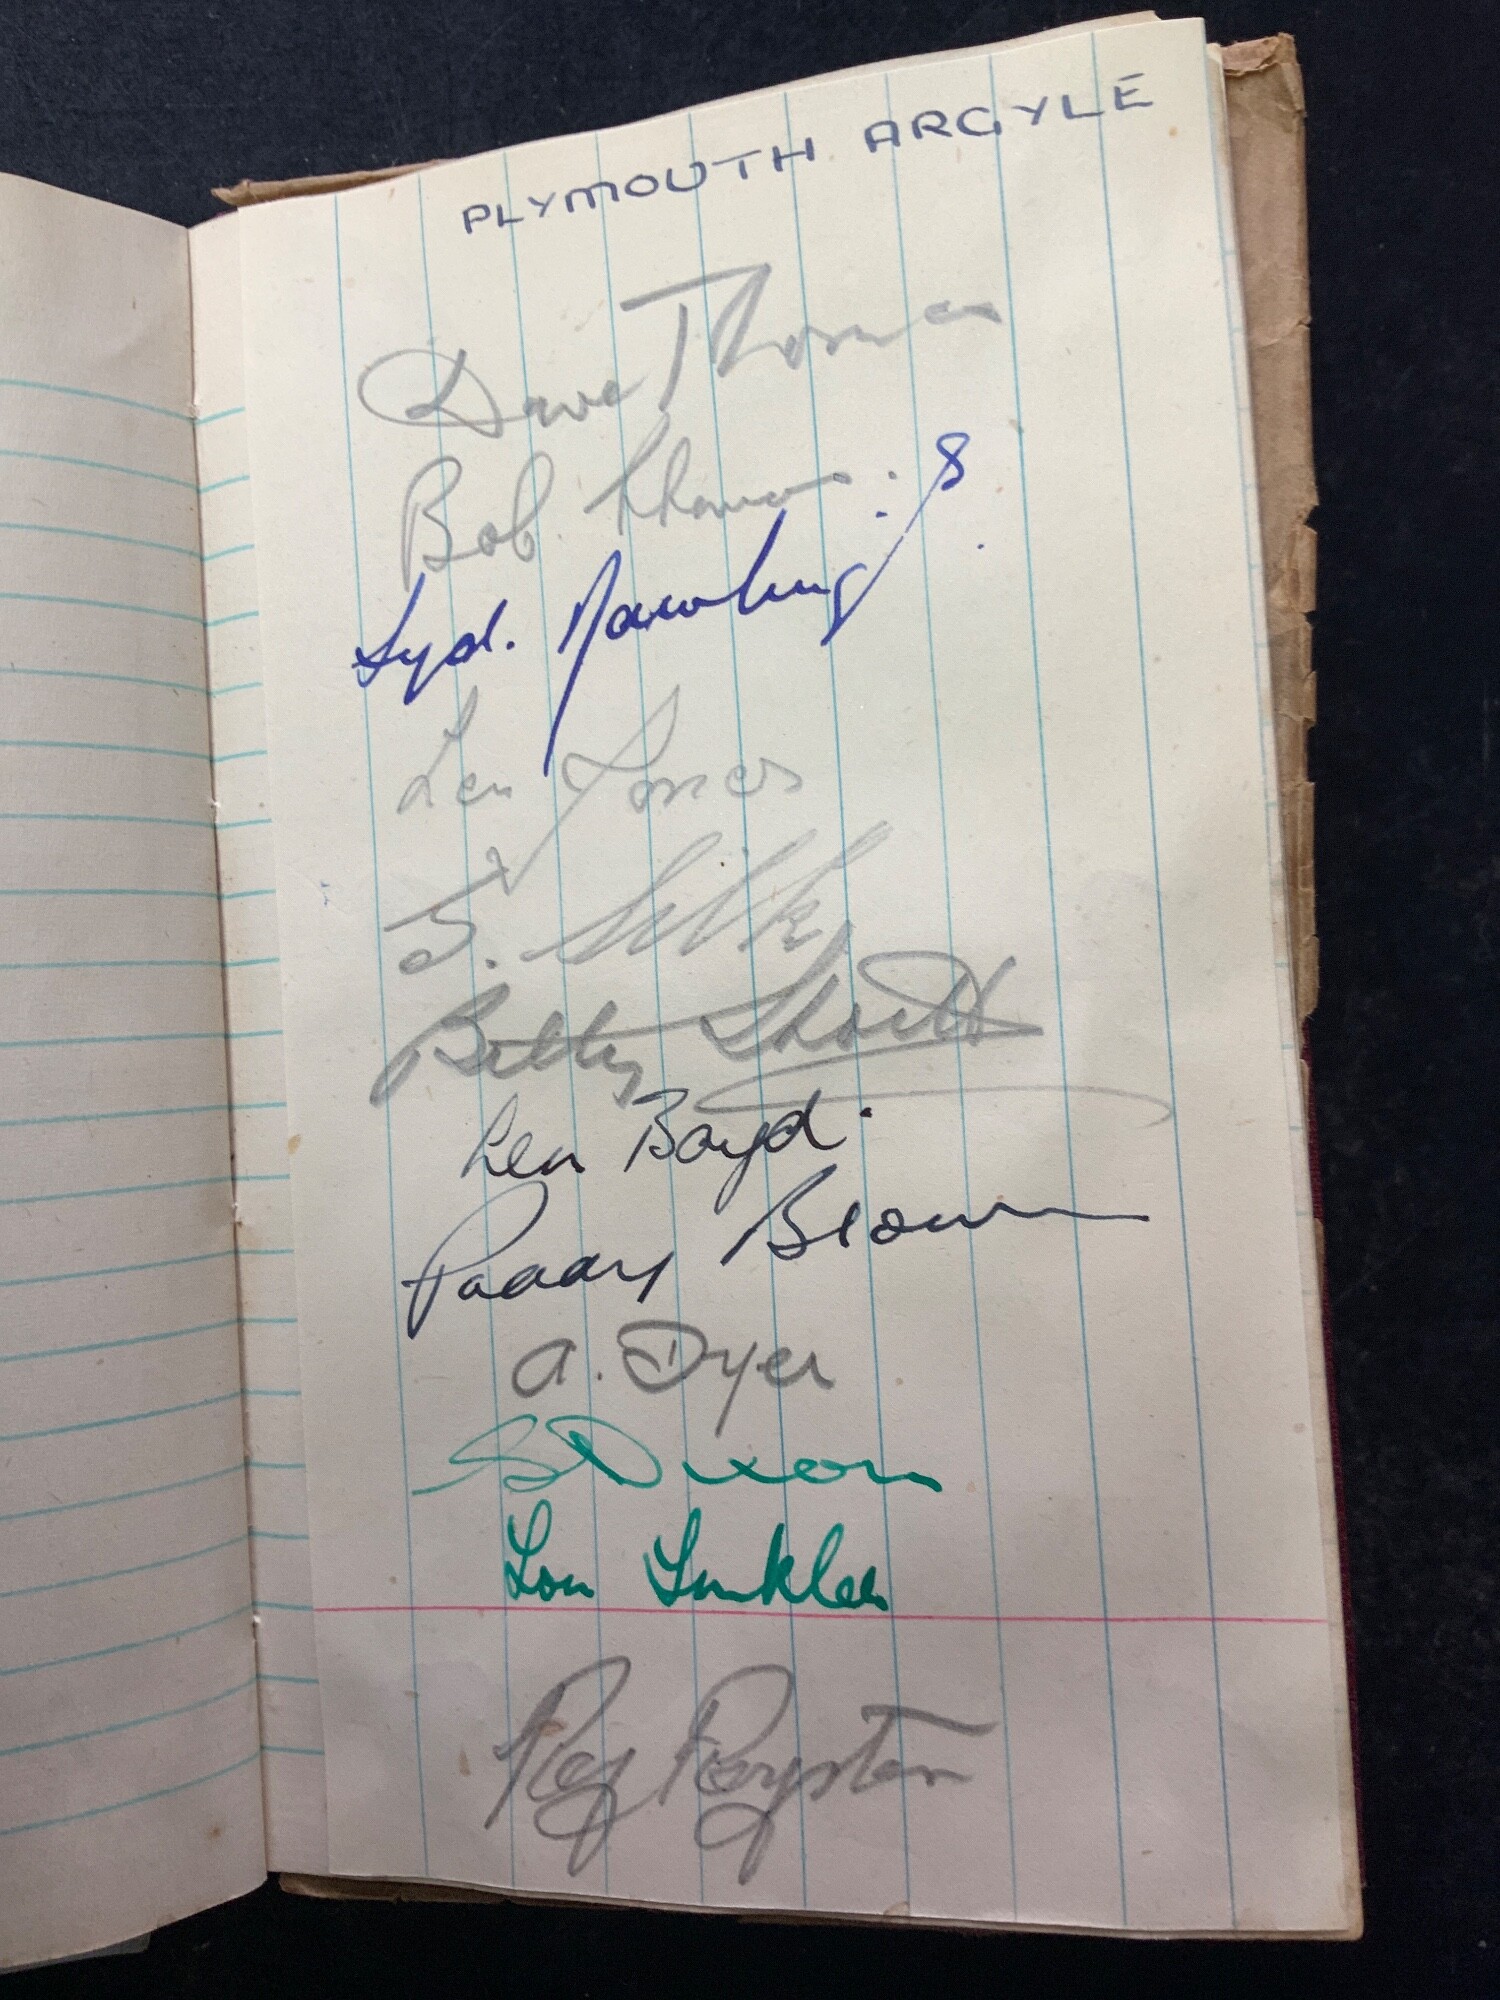 PLYMOUTH ARGYLE
Dave Thomas
Bob. Thomas.
Syd. Rawlings.
Len Jones
S. Silk
Billy Shortt
Len Boyd.
Paddy Brown
A. Dyer
S Dixon
Lou Tinkler
Ray Royston